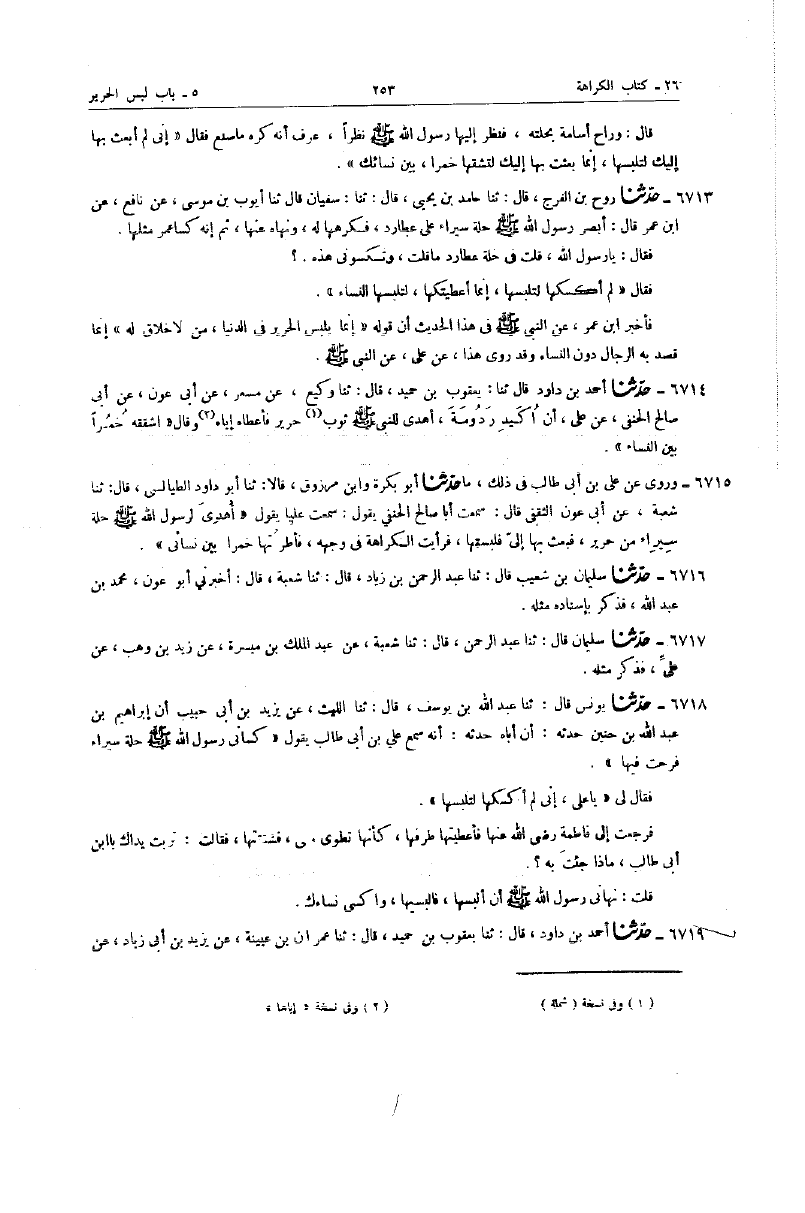 ٢٦ - كتاب الكراهة ٢٥٣ ٥ - باب لبس الحرير
قال : وراح أسامة بحلته ، فنظر إليها رسول الله ﷺ نظراً ، عرف أنه كره ماصنع فقال « إنى لم أبعث بها
إليك لتلبسها ، إنما بعثت بها إليك لتشققها خمرا ، بين نسائك » .
٦٧١٣ - حدثنا روح بن الفرج ، قال : ثنا حامد بن يحيى ، قال : ثنا : سفيان قال ثنا أيوب بن موسى ، عن نافع ، عن
ابن عمر قال : أبصر رسول الله ﷺ حلة سيراء على عطارد ، فكرهها له ، ونهاه عنها ، ثم إنه كساعمر مثلها .
فقال : يارسول الله ، قلت فى حلة عطارد ماقلت ، وتكسونى هذه . ؟
فقال « لم أكسكها لتلبسها ، إنما أعطيتكها ، لتلبسها النساء » .
فأخبر ابن عمر ، عن النبي ﷺ فى هذا الحديث أن قوله « إنما يلبس الحرير فى الدنيا ، من لاخلاق له » إنما
قصد به الرجال دون النساء وقد روى هذا ، عن على ، عن النبي ﷺ .
٦٧١٤ - حدثنا أحمد بن داود قال ثنا : يعقوب بن حميد ، قال : ثنا وكيع ، عن مسعر ، عن أبى عون ، عن أبى
صالح الحنفى ، عن على ، أن أُكَيدِرَدُومَةَ ، أهدى للنبي ﷺ ثوب(١) حرير فأعطاه إياه(٢) وقال « اشققه خُمُراً
بين النساء » .
٦٧١٥ - وروى عن على بن أبى طالب فى ذلك ، ماحدثنا أبو بكرة وابن مرزوق ، قالا : ثنا أبو داود الطيالسى ، قال : ثنا
شعبة ، عن أبى عون الثقفى قال : سمعت أبا صالح الحنفي يقول : سمعت عليا يقول « أُهدىَ لرسول الله ﷺ حلة
سيراء من حرير ، فبعث بها إلىّ فلبستها ، فرأيت الكراهة فى وجهه ، فأطرتها خمرا بين نسائى » .
٦٧١٦ - حدثنا سليمان بن شعيب قال : ثنا عبد الرحمن بن زياد ، قال : ثنا شعبة ، قال : أخبرني أبو عون ، محمد بن
عبد الله ، فذكر بإسناده مثله .
٦٧١٧ - حدثنا سليمان قال : ثنا عبد الرحمن ، قال : ثنا شعبة ، عن عبد الملك بن ميسرة ، عن زيد بن وهب ، عن
علىّ ، فذكر مثله .
٦٧١٨ - حدثنا يونس قال : ثنا عبد الله بن يوسف ، قال : ثنا الليث ، عن يزيد بن أبى حبيب أن إبراهيم بن
عبد الله بن حنين حدثه : أن أباه حدثه : أنه سمع علي بن أبى طالب يقول « كسانى رسول الله ﷺ حلة سيراء
فرحت فيها » .
فقال لى « ياعلى ، إنى لم أكسكها لتلبسها » .
فرجعت إلى فاطمة رضى الله عنها فأعطيتها طرفها ، كأنها تطوى ، فشققتها ، فقالت : تربت يداك ياابن
أبى طالب ، ماذا جئتَ به ؟ .
قلت : نهانى رسول الله ﷺ أن ألبسها ، فالبسيها ، واكسى نساءك .
٦٧١٩ - حدثنا أحمد بن داود ، قال : ثنا يعقوب بن حميد ، قال : ثنا عمر ان بن عيينة ، عن يزيد بن أبى زياد ، عن
( ١ ) وفى نسخة ( شملة ) ( ٢ ) وفى نسخة « إياها »